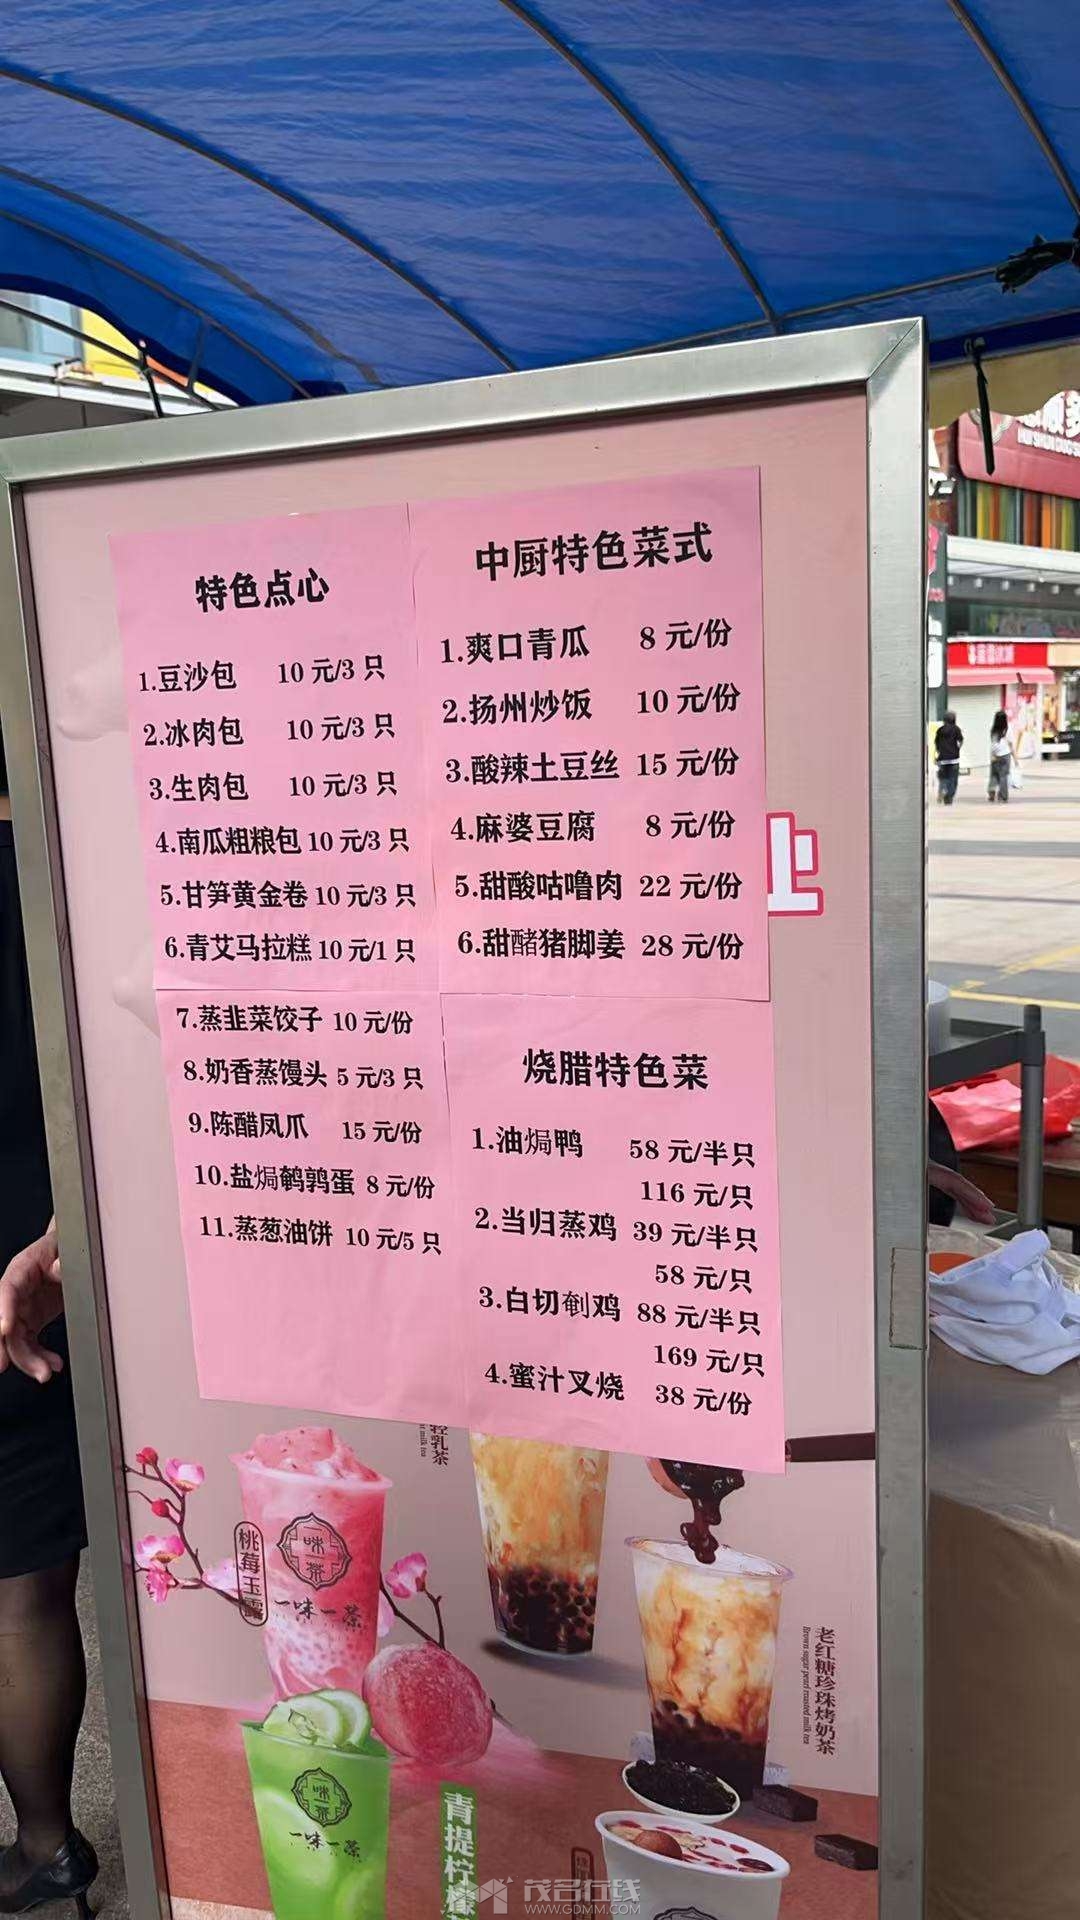 特色点心
1.豆沙包 10 元/3 只
2.冰肉包 10 元/3 只
3.生肉包 10 元/3 只
4.南瓜粗粮包 10 元/3 只
5.甘笋黄金卷 10 元/3 只
6.青艾马拉糕 10 元/1 只
7.蒸韭菜饺子 10 元/份
8.奶香蒸馒头 5 元/3 只
9.陈醋凤爪 15 元/份
10.盐焗鹌鹑蛋 8 元/份
11.蒸葱油饼 10 元/5 只
中厨特色菜式
1.爽口青瓜 8 元/份
2.扬州炒饭 10 元/份
3.酸辣土豆丝 15 元/份
4.麻婆豆腐 8 元/份
5.甜酸咕噜肉 22 元/份
6.甜醏猪脚姜 28 元/份
烧腊特色菜
1.油焗鸭 58 元/半只
116 元/只
2.当归蒸鸡 39 元/半只
58 元/只
3.白切劁鸡 88 元/半只
169 元/只
4.蜜汁叉烧 38 元/份
轻乳茶
桃莓玉露
一味一茶
一味一茶
老红糖珍珠烤奶茶
Brown sugar pearl roasted milk tea
一味一茶
一味一茶
青提柠檬
茂名在线
WWW.GDMM.COM